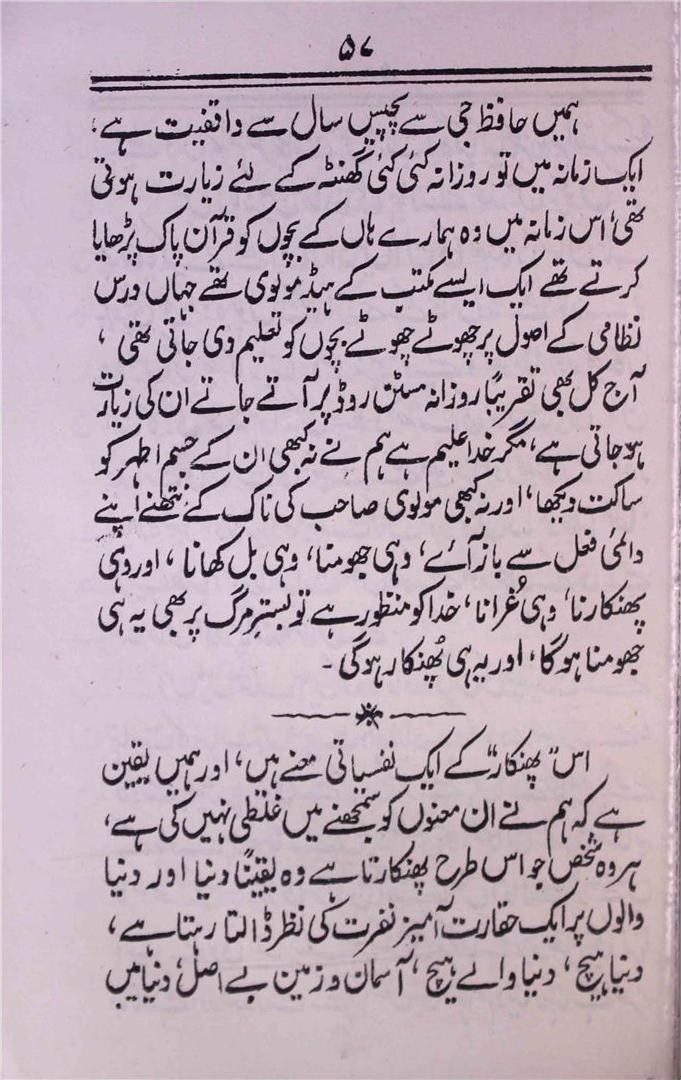 ۵۷
ہمیں حافظ جی سے پچیس سال سے واقفیت ہے،
ایک زمانہ میں تو روزانہ کئی کئی گھنٹہ کے لئے زیارت ہوتی
تھی، اس زمانہ میں وہ ہمارے ہاں کے بچوں کو قرآن پاک پڑھایا
کرتے تھے ایک ایسے مکتب کے ہیڈ مولوی تھے جہاں درس
نظامی کے اصول پر چھوٹے چھوٹے بچوں کو تعلیم دی جاتی تھی،
آج کل بھی تقریباً روزانہ مسٹن روڈ پر آتے جاتے ان کی زیارت
ہو جاتی ہے، مگر خدا علیم ہے ہم نے نہ کبھی ان کے جسم اطہر کو
ساکت دیکھا، اور نہ کبھی مولوی صاحب کی ناک کے نتھنے اپنے
دائمی فعل سے باز آئے، وہی جھومنا، وہی بل کھانا، اور وہی
پھنکارنا، وہی غُرانا، خدا کو منظور ہے تو بستر مرگ پر بھی یہ ہی
جھومنا ہوگا، اور یہ ہی پُھنکار ہوگی۔
اس "پھنکار" کے ایک نفسیاتی معنے ہیں، اور ہمیں یقین
ہے کہ ہم نے ان معنوں کو سمجھنے میں غلطی نہیں کی ہے،
ہر وہ شخص جو اس طرح پھنکارتا ہے وہ یقیناً دنیا اور دنیا
والوں پر ایک حقارت آمیز نفرت کی نظر ڈالتا رہتا ہے،
دنیا ہیچ، دنیا والے ہیچ، آسمان و زمین بے اصل، دنیا میں